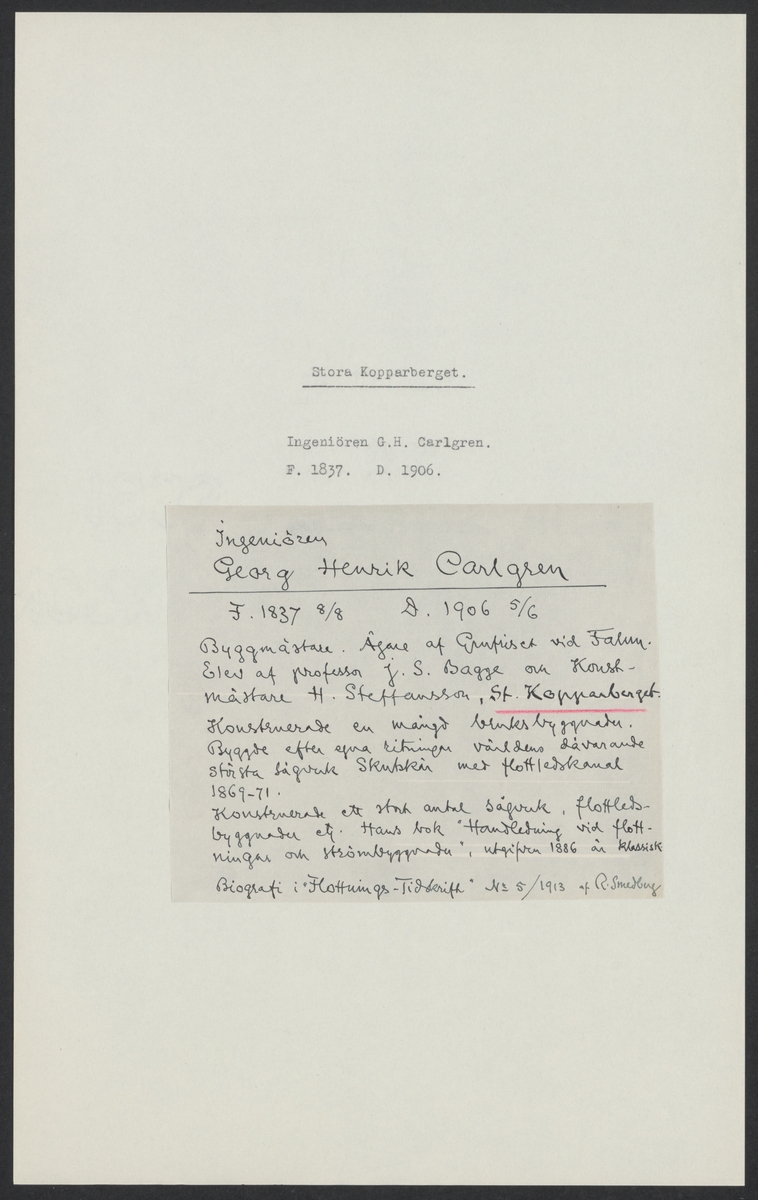 Stora Kopparberget.
Ingeniören G.H. Carlgren.
F. 1837. D. 1906.
Ingeniören
Georg Henrik Carlgren
F. 1837 8/8 D. 1906 5/6
Byggmästare. Ägare af Grufriset vid Falun.
Elev af professor J. S. Bagge och Konst-
mästare H. Steffansson, St. Kopparberget.
Konstruerade en mängd bruksbyggnader.
Byggde efter egna ritningar världens dåvarande
största sågverk Skutskär med flottledskanal
1869-71.
Konstruerade ett stort antal sågverk, flottleds-
byggnader etc. Hans bok "Handledning vid flott-
ningar och strömbyggnader", utgifven 1886 är klassisk
Biografi i "Flottnings-Tidskrift" No 5/1913 af R. Smedberg